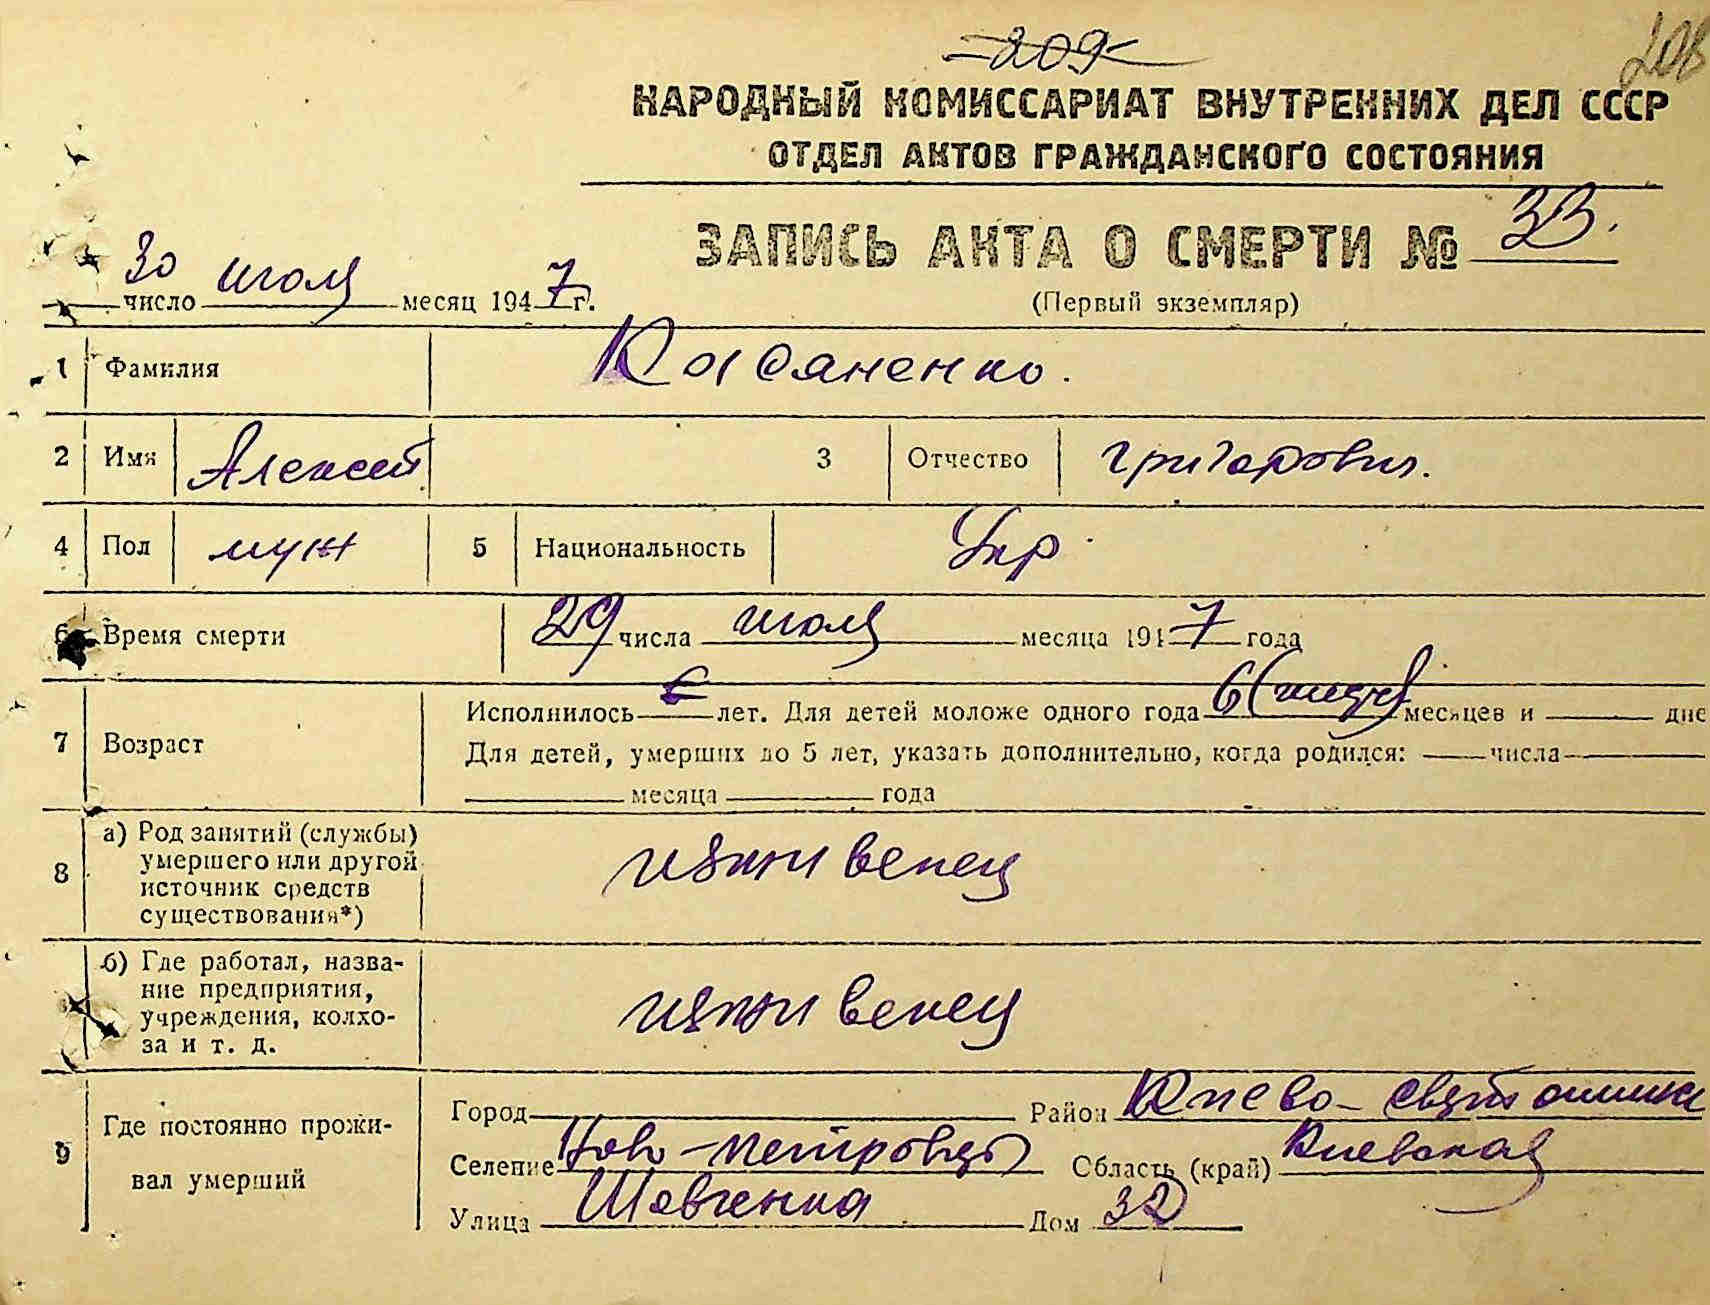 209
208
НАРОДНЫЙ КОМИССАРИАТ ВНУТРЕННИХ ДЕЛ СССР
ОТДЕЛ АКТОВ ГРАЖДАНСКОГО СОСТОЯНИЯ
ЗАПИСЬ АКТА О СМЕРТИ № 33.
30 число июля месяц 1947 г.
(Первый экземпляр)
1 Фамилия Касяненко.
2 Имя Алексей 3 Отчество Григорович.
4 Пол муж 5 Национальность Укр.
6 Время смерти 29 числа июля месяца 1947 года
7 Возраст
Исполнилось лет. Для детей моложе одного года 6 ( месяцев и дне
Для детей, умерших до 5 лет, указать дополнительно, когда родился: числа
месяца года
8 а) Род занятий (службы)
умершего или другой
источник средств
существования*)
иждивенец
б) Где работал, назва-
ние предприятия,
учреждения, колхо-
за и т. д.
иждивенец
9 Где постоянно прожи-
вал умерший
Город Район Киево-Святошинск
Селение Нов-Петровцы Область (край) Киевская
Улица Шевченка Дом 32